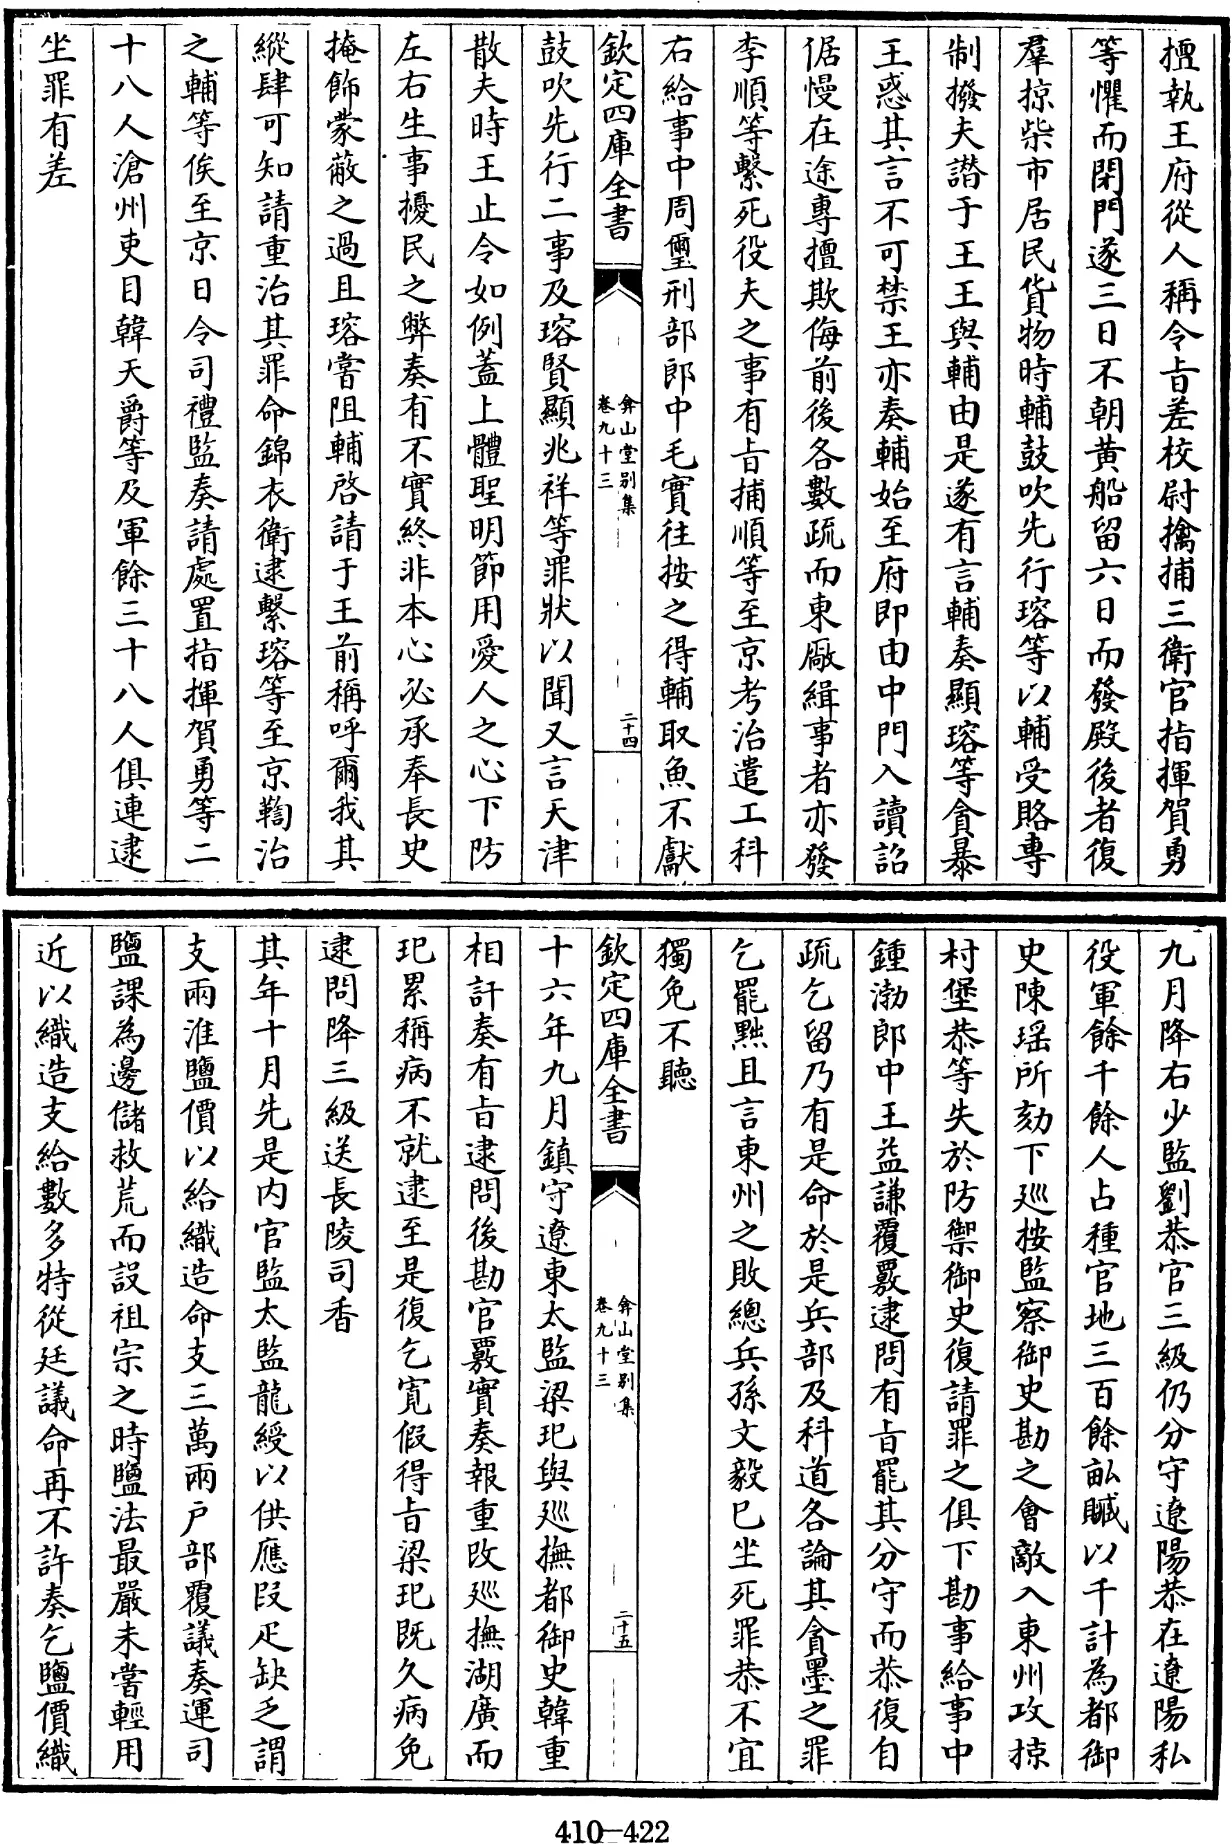 擅執王府從人稱令㫖差校尉擒捕三衛官指揮賀勇
等懼而閉門遂三日不朝黄船留六日而發殿後者復
羣掠柴市居民貨物時輔鼓吹先行瑢等以輔受賂專
制撥夫譛于王王與輔由是遂有言輔奏顯瑢等貪暴
王惑其言不可禁王亦奏輔始至府即由中門入讀詔
倨慢在途專擅欺侮前後各數疏而東廠緝事者亦發
李順等繫死役夫之事有㫖捕順等至京考治遣工科
右給事中周璽刑部郎中毛實往按之得輔取魚不獻
欽定四庫全書
弇山堂别集
卷九十三
二十四
鼓吹先行二事及瑢賢顯兆祥等罪狀以聞又言天津
散夫時王止令如例蓋上體聖明節用愛人之心下防
左右生事擾民之弊奏有不實終非本心必承奉長史
掩飾蒙蔽之過且瑢嘗阻輔啓請于王前稱呼爾我其
縱肆可知請重治其罪命錦衣衛逮繫瑢等至京鞫治
之輔等俟至京日令司禮監奏請處置指揮賀勇等二
十八人滄州吏目韓天爵等及軍餘三十八人俱連逮
坐罪有差
九月降右少監劉恭官三級仍分守遼陽恭在遼陽私
役軍餘千餘人占種官地三百餘畝贓以千計為都御
史陳瑶所劾下廵按監察御史勘之會敵入東州攻掠
村堡恭等失於防禦御史復請罪之俱下勘事給事中
鍾渤郎中王益謙覆覈逮問有㫖罷其分守而恭復自
疏乞留乃有是命於是兵部及科道各論其貪墨之罪
乞罷黜且言東州之敗總兵孫文毅巳坐死罪恭不宜
獨免不聽
欽定四庫全書
弇山堂别集
卷九十三
二十五
十六年九月鎮守遼東太監梁玘與廵撫都御史韓重
相訐奏有㫖逮問後勘官覈實奏報重改廵撫湖廣而
玘累稱病不就逮至是復乞寛假得㫖梁玘既久病免
逮問降三級送長陵司香
其年十月先是内官監太監龍綬以供應叚疋缺乏謂
支兩淮鹽價以給織造命支三萬兩户部覆議奏運司
鹽課為邊儲救荒而設祖宗之時鹽法最嚴未嘗輕用
近以織造支給數多特從廷議命再不許奏乞鹽價織
410-422